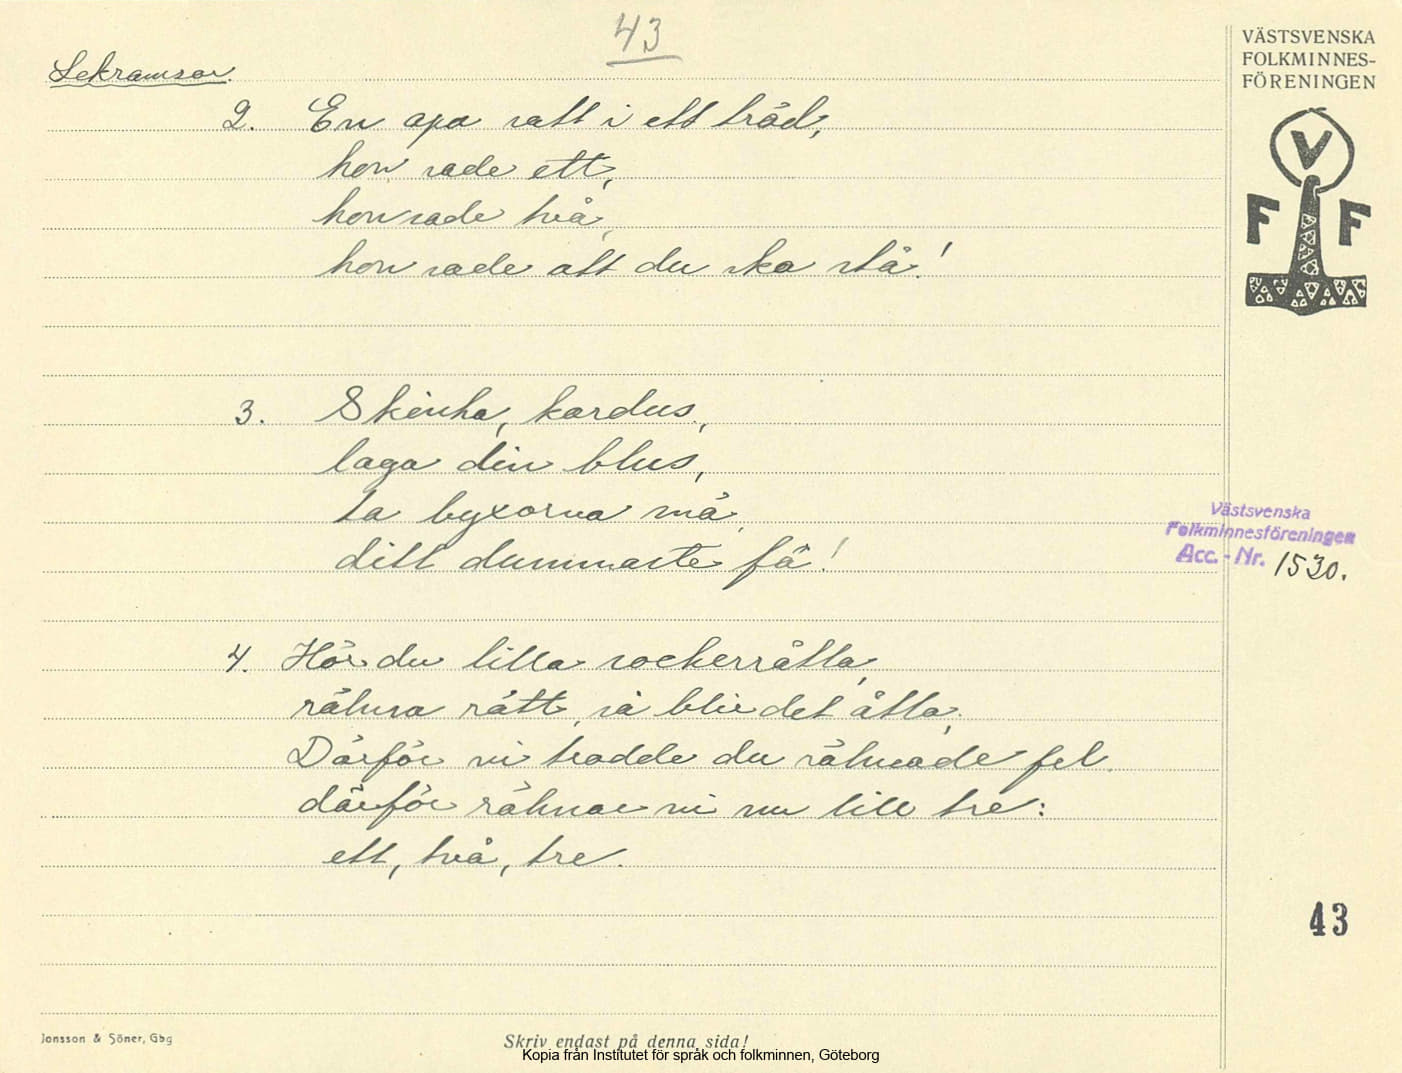 43
VÄSTSVENSKA
FOLKMINNES-
FÖRENINGEN
V
F F
Lekramsor.
2. En apa satt i ett träd,
hon sade ett,
hon sade två,
hon sade att du ska stå!
3. Skinka, kardus,
laga din blus,
ta byxorna må,
ditt dummaste få!
Västsvenska
Folkminnesföreningen
Acc.-Nr. 1530.
4. Hör du lilla sockerråtta,
räkna rätt, så blir det åtta,
Därför vi trodde du räknade fel
därför räknar vi nu till tre:
ett, två, tre.
43
Jonsson & Söner, Gbg
Skriv endast på denna sida!
Kopia från Institutet för språk och folkminnen, Göteborg